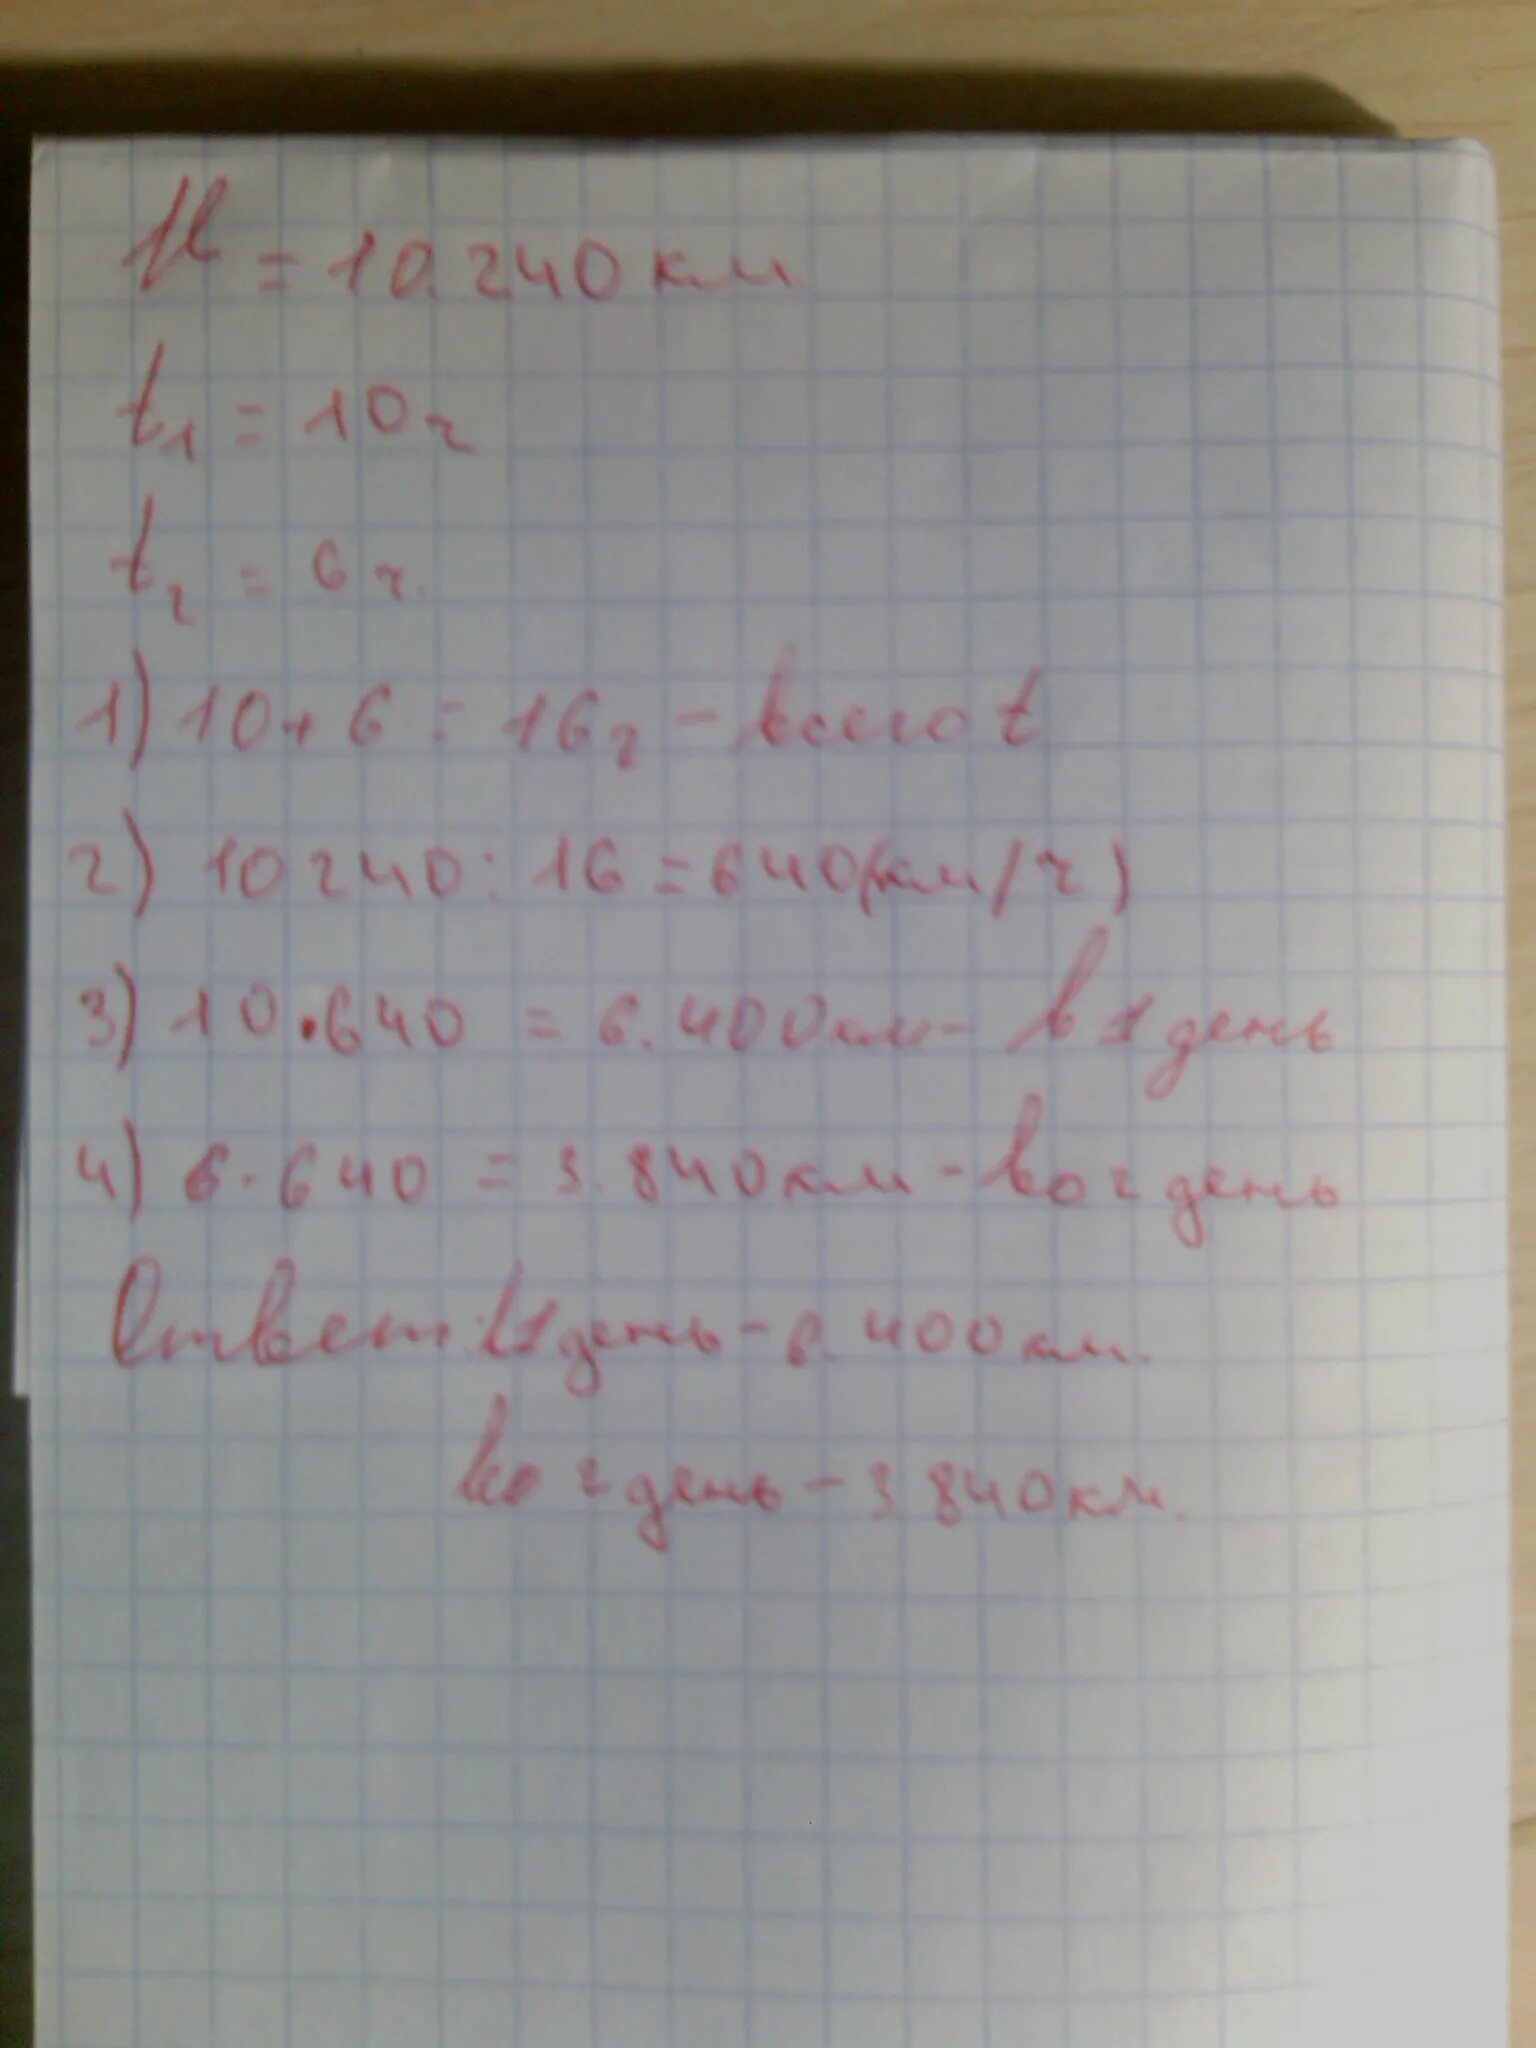 = 10.240 км
t₁ = 10 ч
t₂ = 6 ч.
1) 10 + 6 = 16 ч - всего t
2) 10 240 : 16 = 640 (км/ч)
3) 10 · 640 = 6.400 км - в 1 день
4) 6 · 640 = 3.840 км - во 2 день
Ответ: в 1 день - 6.400 км.
во 2 день - 3 840 км.